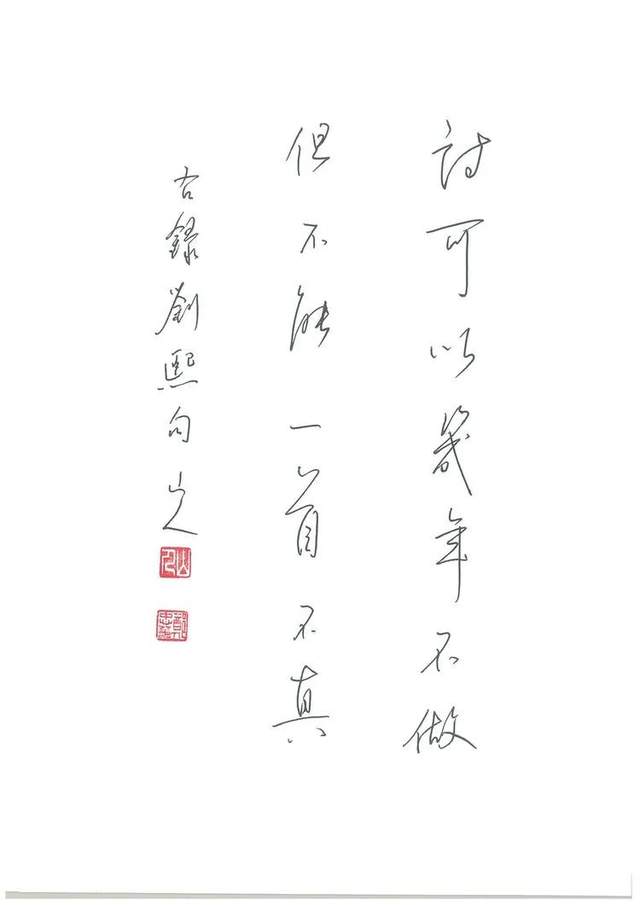 詩可以幾年不做
但不能一首不真
右錄劉熙句山人